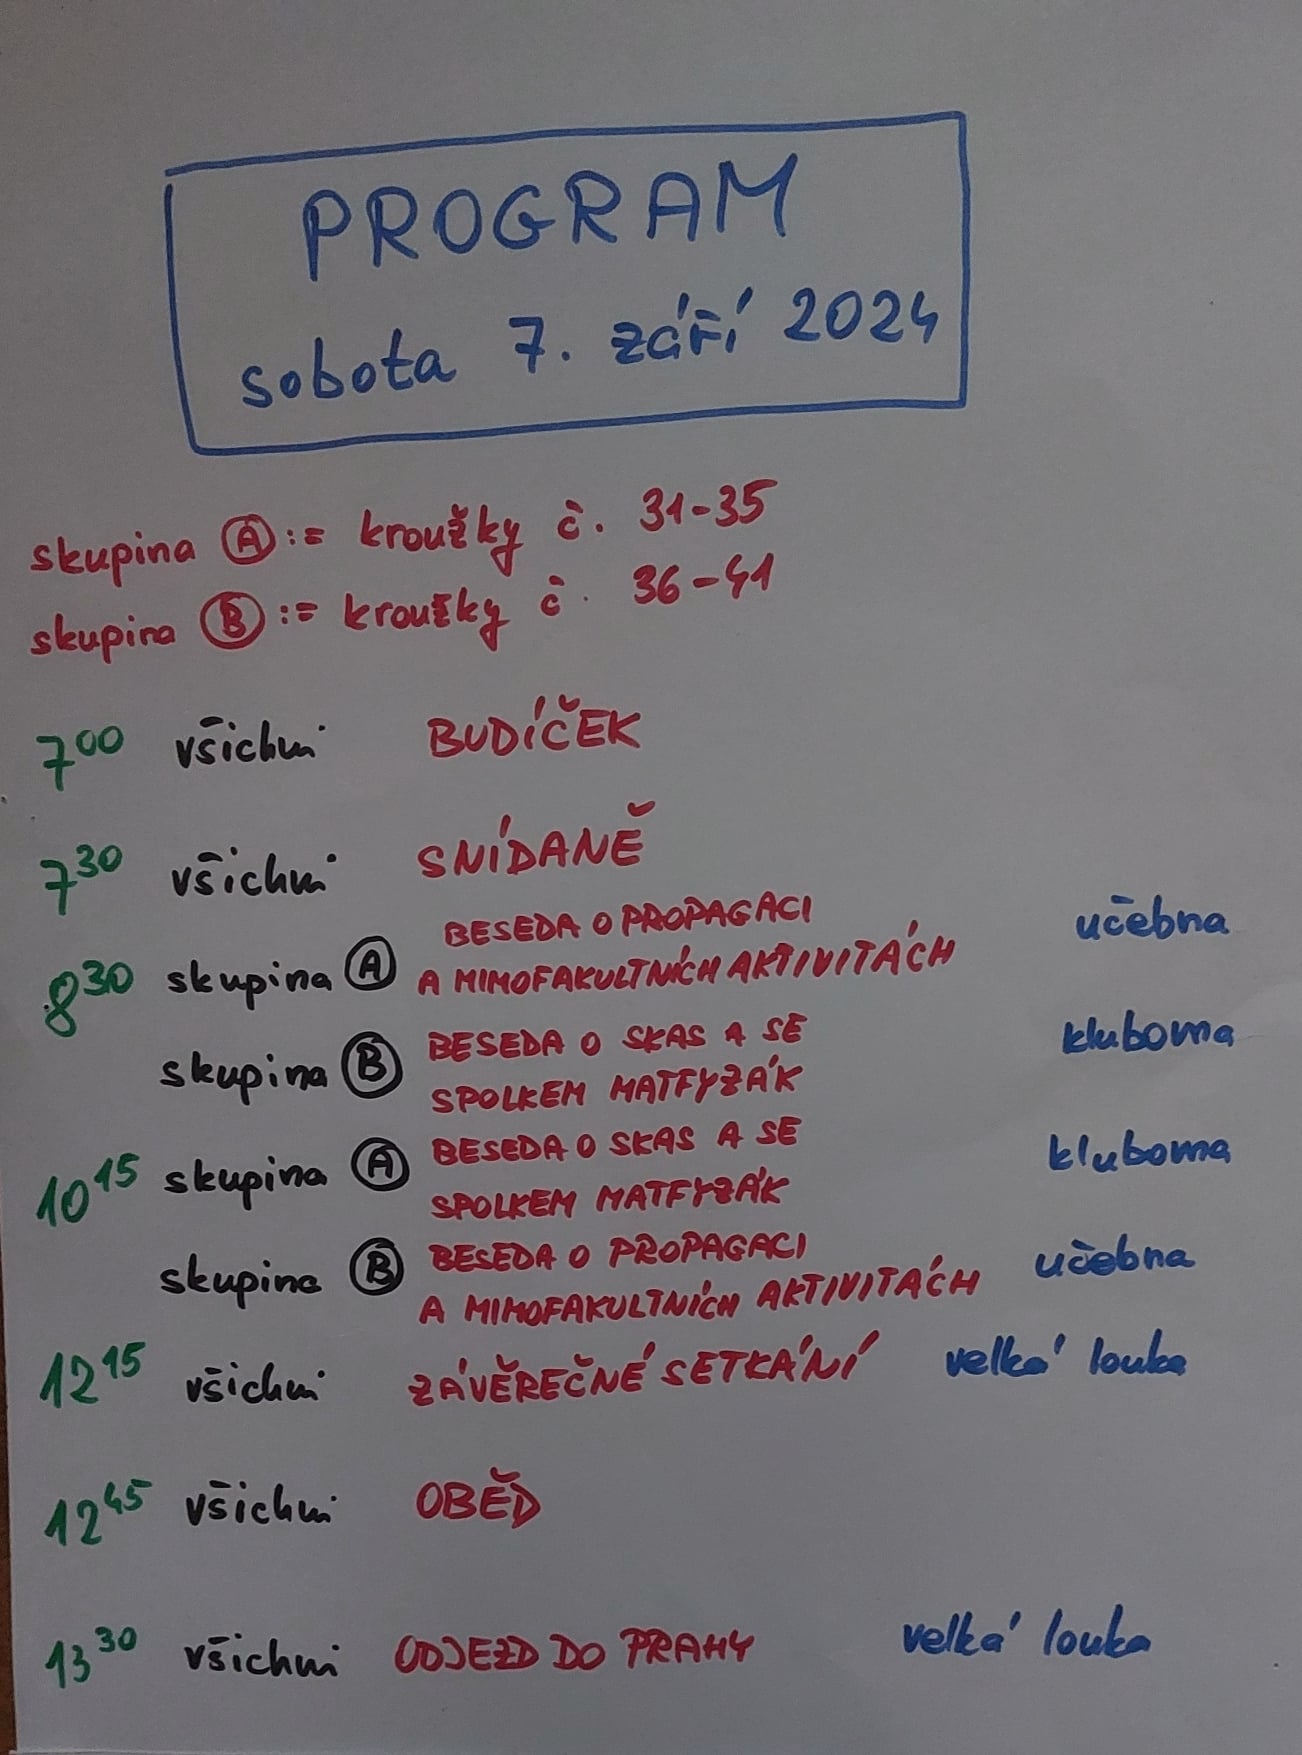 PROGRAM
sobota 7. září 2024
skupina A := kroužky č. 31-35
skupina B := kroužky č. 36-41
7 00 všichni BUDÍČEK
7 30 všichni SNÍDANĚ
BESEDA O PROPAGACI učebna
8 30 skupina A A MIMOFAKULTNÍCH AKTIVITÁCH
skupina B BESEDA O SKAS A SE klubovna
SPOLKEM MATFYZÁK
10 15 skupina A BESEDA O SKAS A SE klubovna
SPOLKEM MATFYZÁK
skupina B BESEDA O PROPAGACI učebna
A MIMOFAKULTNÍCH AKTIVITÁCH
12 15 všichni ZÁVĚREČNÉ SETKÁNÍ velká louka
12 45 všichni OBĚD
13 30 všichni ODJEZD DO PRAHY velká louka